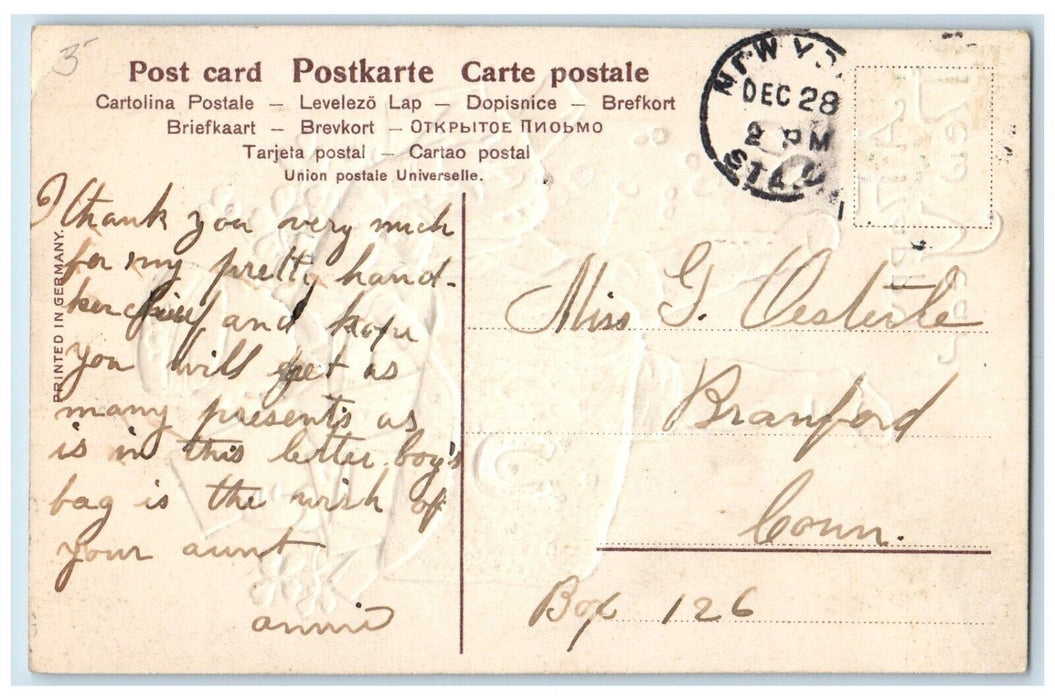 3-
Post card Postkarte Carte postale
Cartolina Postale – Levelező Lap – Dopisnice – Brefkort
Briefkaart – Brevkort – ОТКРЫТОЕ ПИОЬМО
Tarjeta postal – Cartao postal
Union postale Universelle.
NEW YO
DEC 28
2 PM
STA.
PRINTED IN GERMANY.
I thank you very much
for my pretty hand-
kerchief, and hope
you will get as
many present's as
is in this letter boy's
bag is the wish of
your aunt
annie
Miss G. Oesterle
Branford
Conn.
Box 126